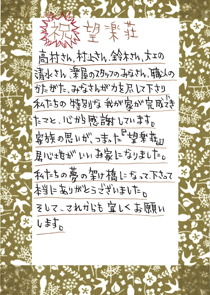 祝 望楽荘
高村さん、村上さん、鈴木さん、大工の
清水さん、澤屋のスタッフのみなさん、職人の
かたがた、みなさんが力を尽して下さり
私たちの特別な我が家が完成でき
たこと、心から感謝しています。
家族の思いがつまった『望楽荘』
居心地がいいお家になりました。
私たちの夢の架け橋になって下さって
本当にありがとうございました。
そして、これからも宜しくお願い
します。